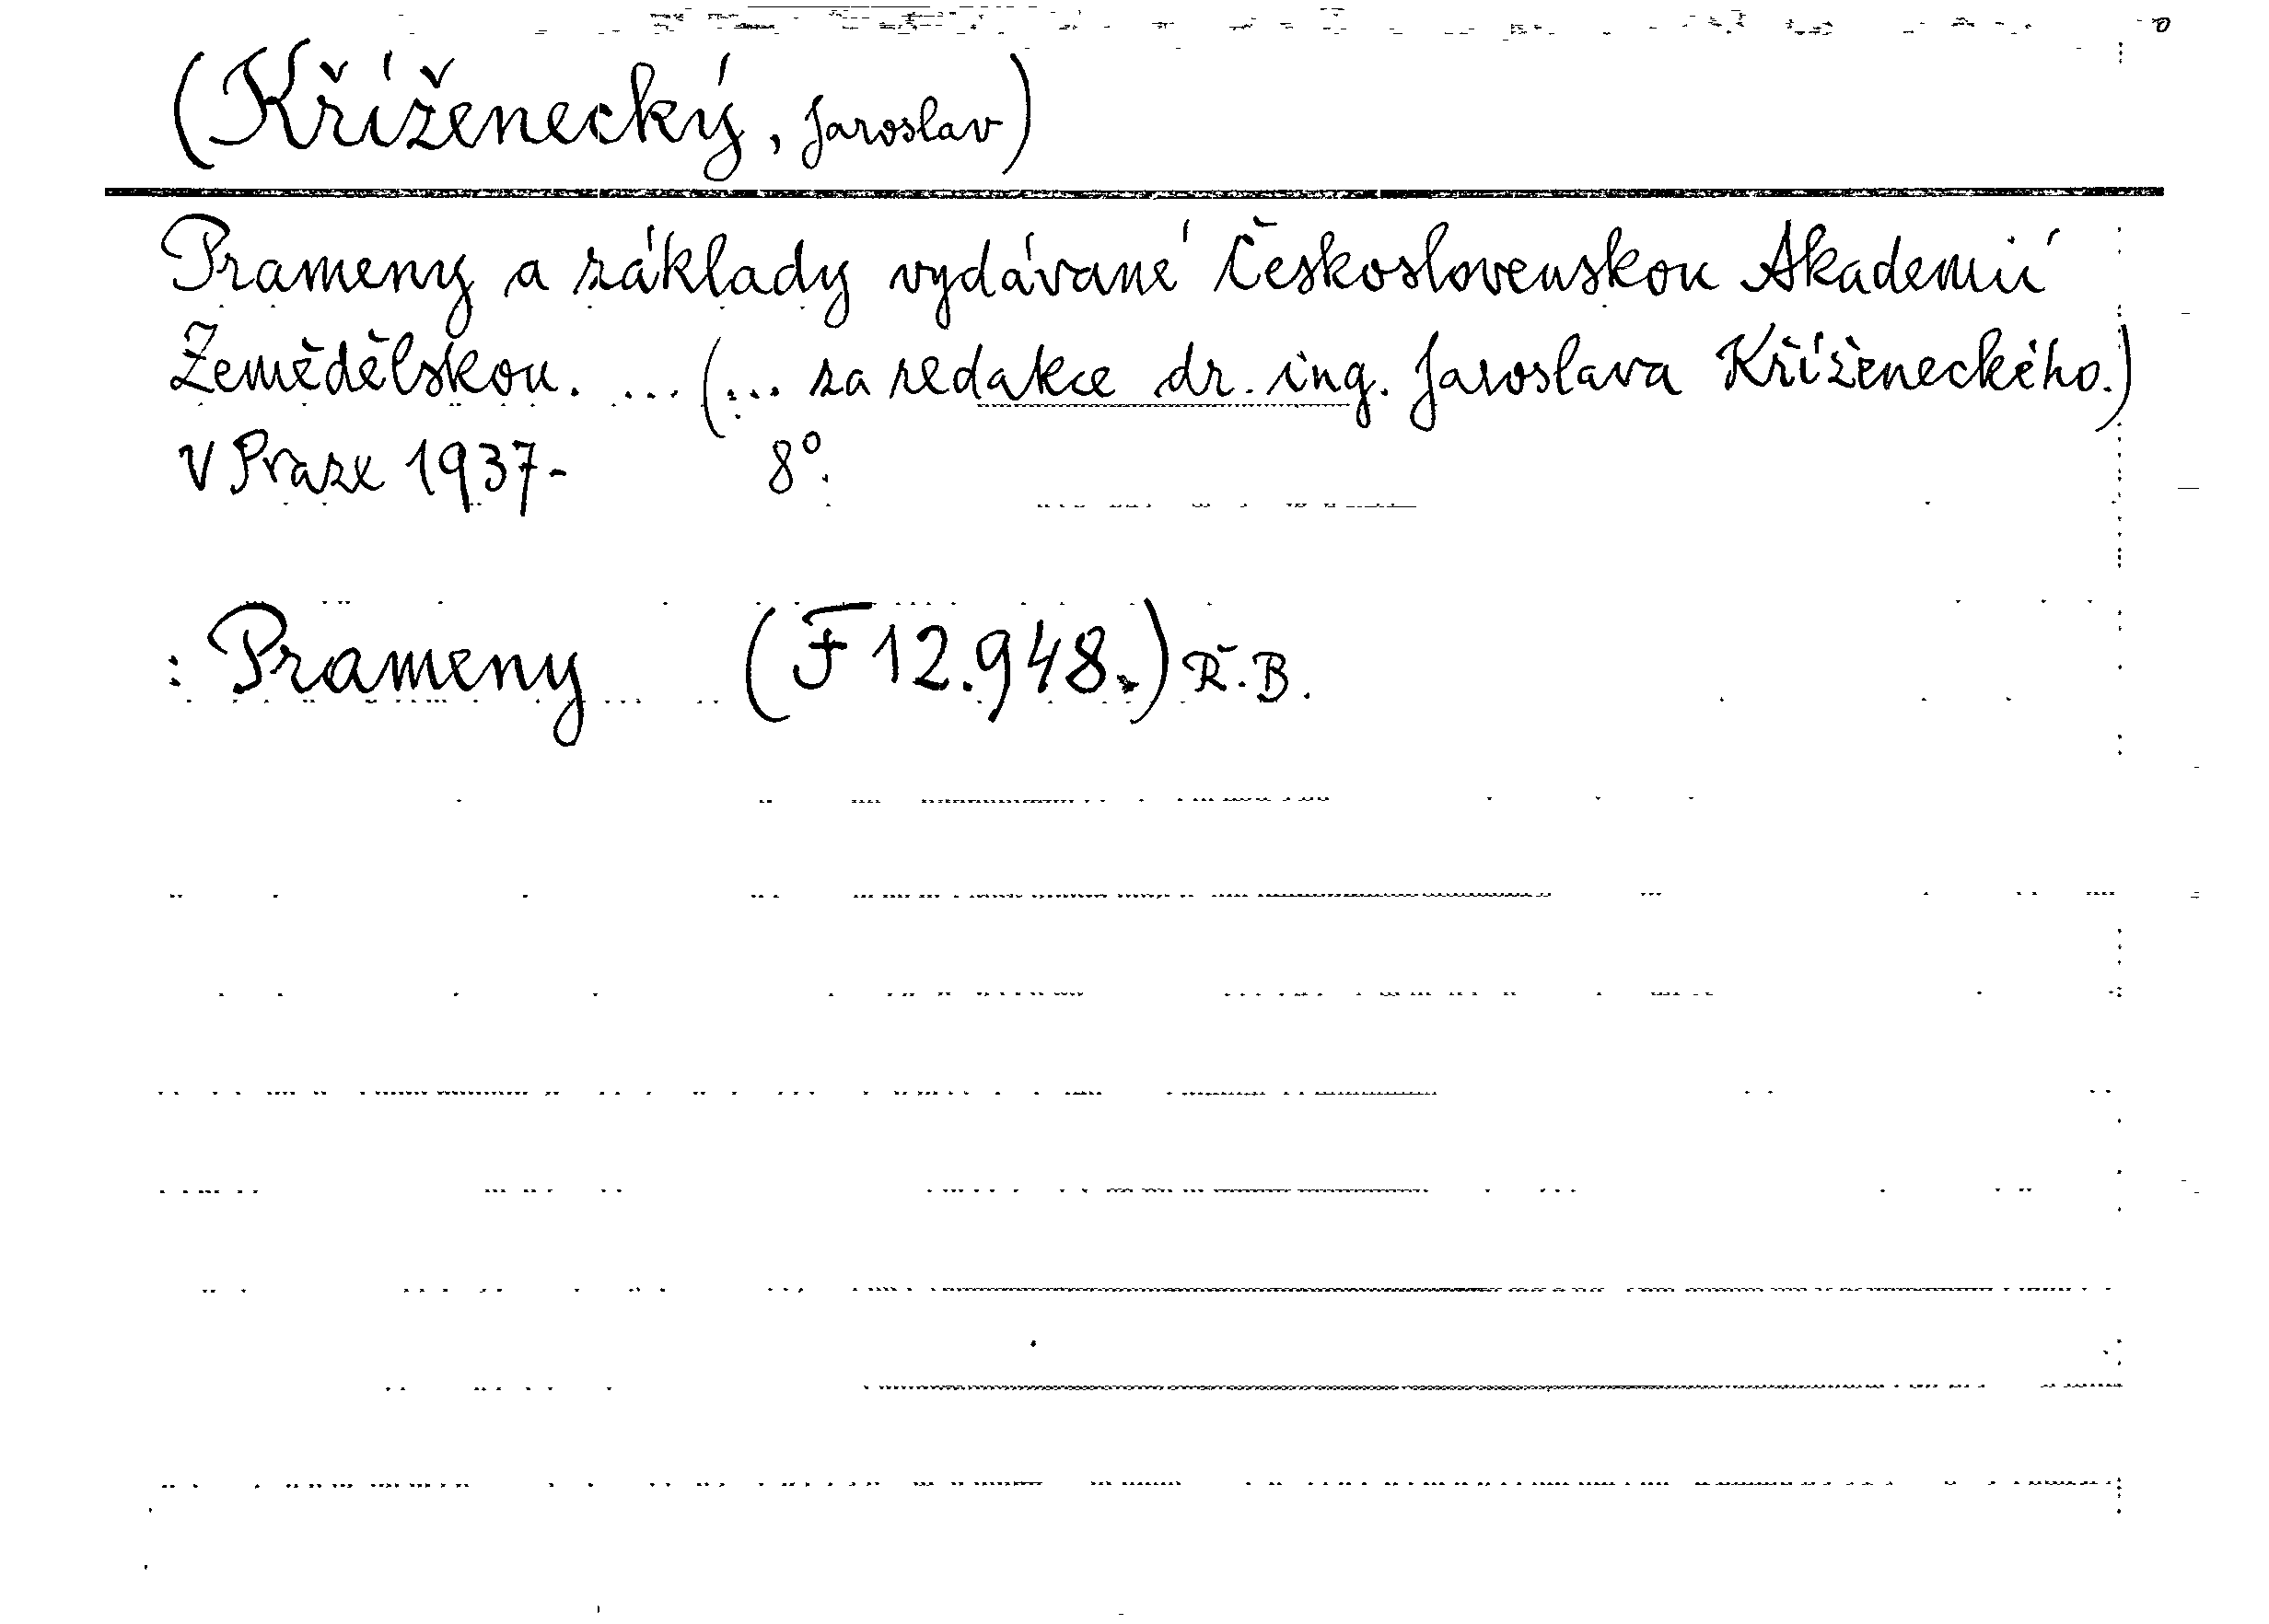 (Kříženecký, Jaroslav)
Prameny a základy vydávané Československou Akademií
Zemědělskou. ... (... za redakce dr. ing. Jaroslava Kříženeckého.)
V Praze 1937- 8°.
: Prameny (F 12.948.) Ř.B.